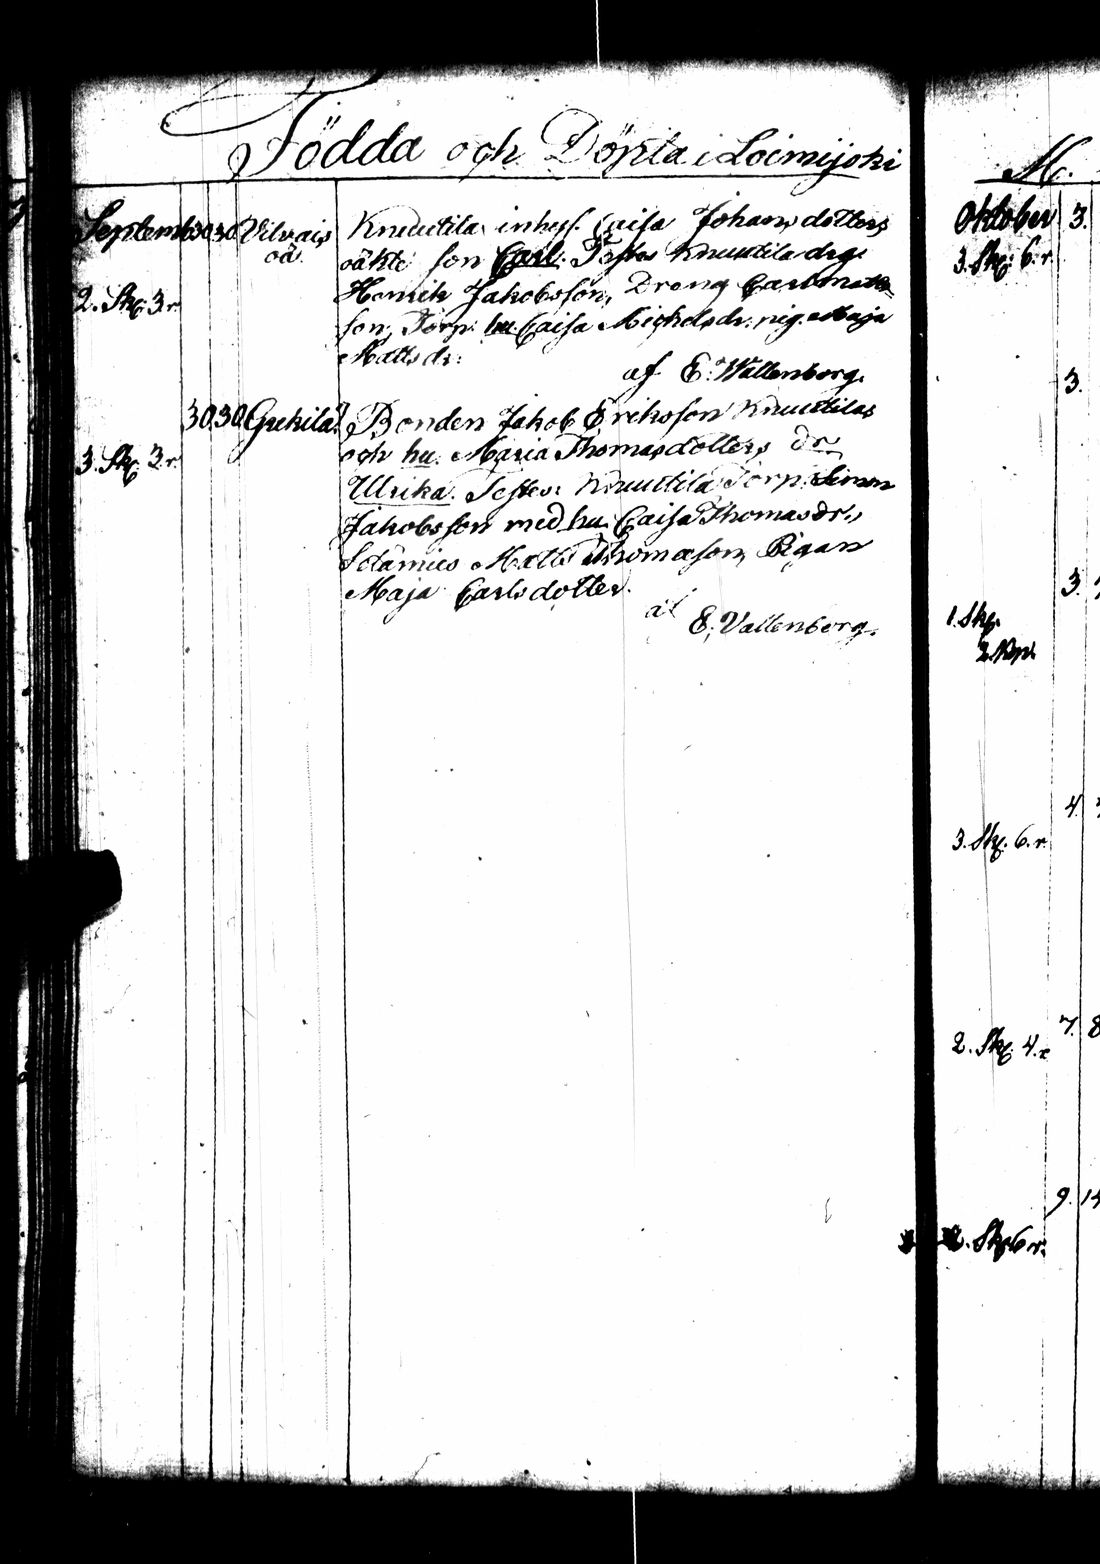 Födda och Döpta i Loimijoki
Septemb. 30 30 Vilvais Knuutila inhys. Caisa Johansdotters
oä. oäkte son Carl. Testes Knuutila drg:
2. Sk. 3 r. Henrik Jakobsson, Dreng Carl Matts
son, Torp: hu. Caisa Michelsdr: pig. Maja
Matts dr:
af E: Wallenborg.
30 30 Bonden Jakob Eriksson Knuutilas
3. Sk. 3 r. och hu. Maria Thomasdotters dr
Ulrika. Testes: Knuutila Torp: Simon
Jakobsson med hu. Caisa Thomasdr.,
Matts Thomasson, Pigan
Maja Carlsdotter.
af
E. Vallenborg.
M.
Oktober 3.
3. Sk. 6. r.
3.
3.
1. Sk.
2. Kop.
4.
3. Sk. 6. r.
7. 8
2. Sk. 4. r
9. 14
2. Sk. 6 r.